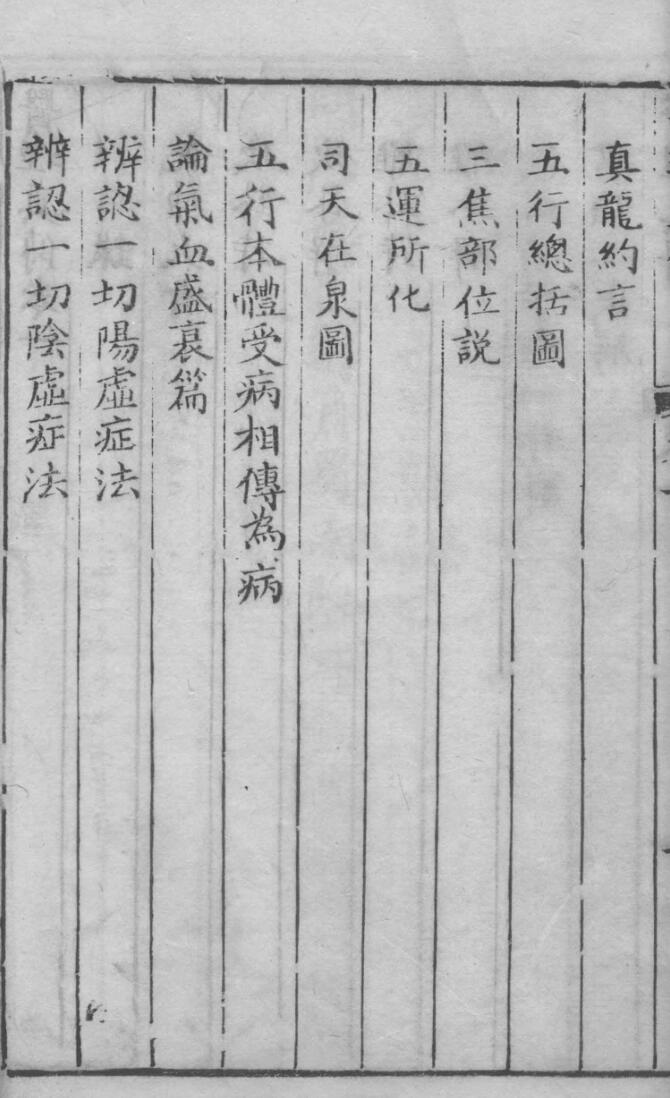 真龍約言
五行總括圖
三焦部位説
五運所化
司天在泉圖
五行本體受病相傳為病
論氣血盛衰篇
辨認一切陽虛症法
辨認一切陰虛症法